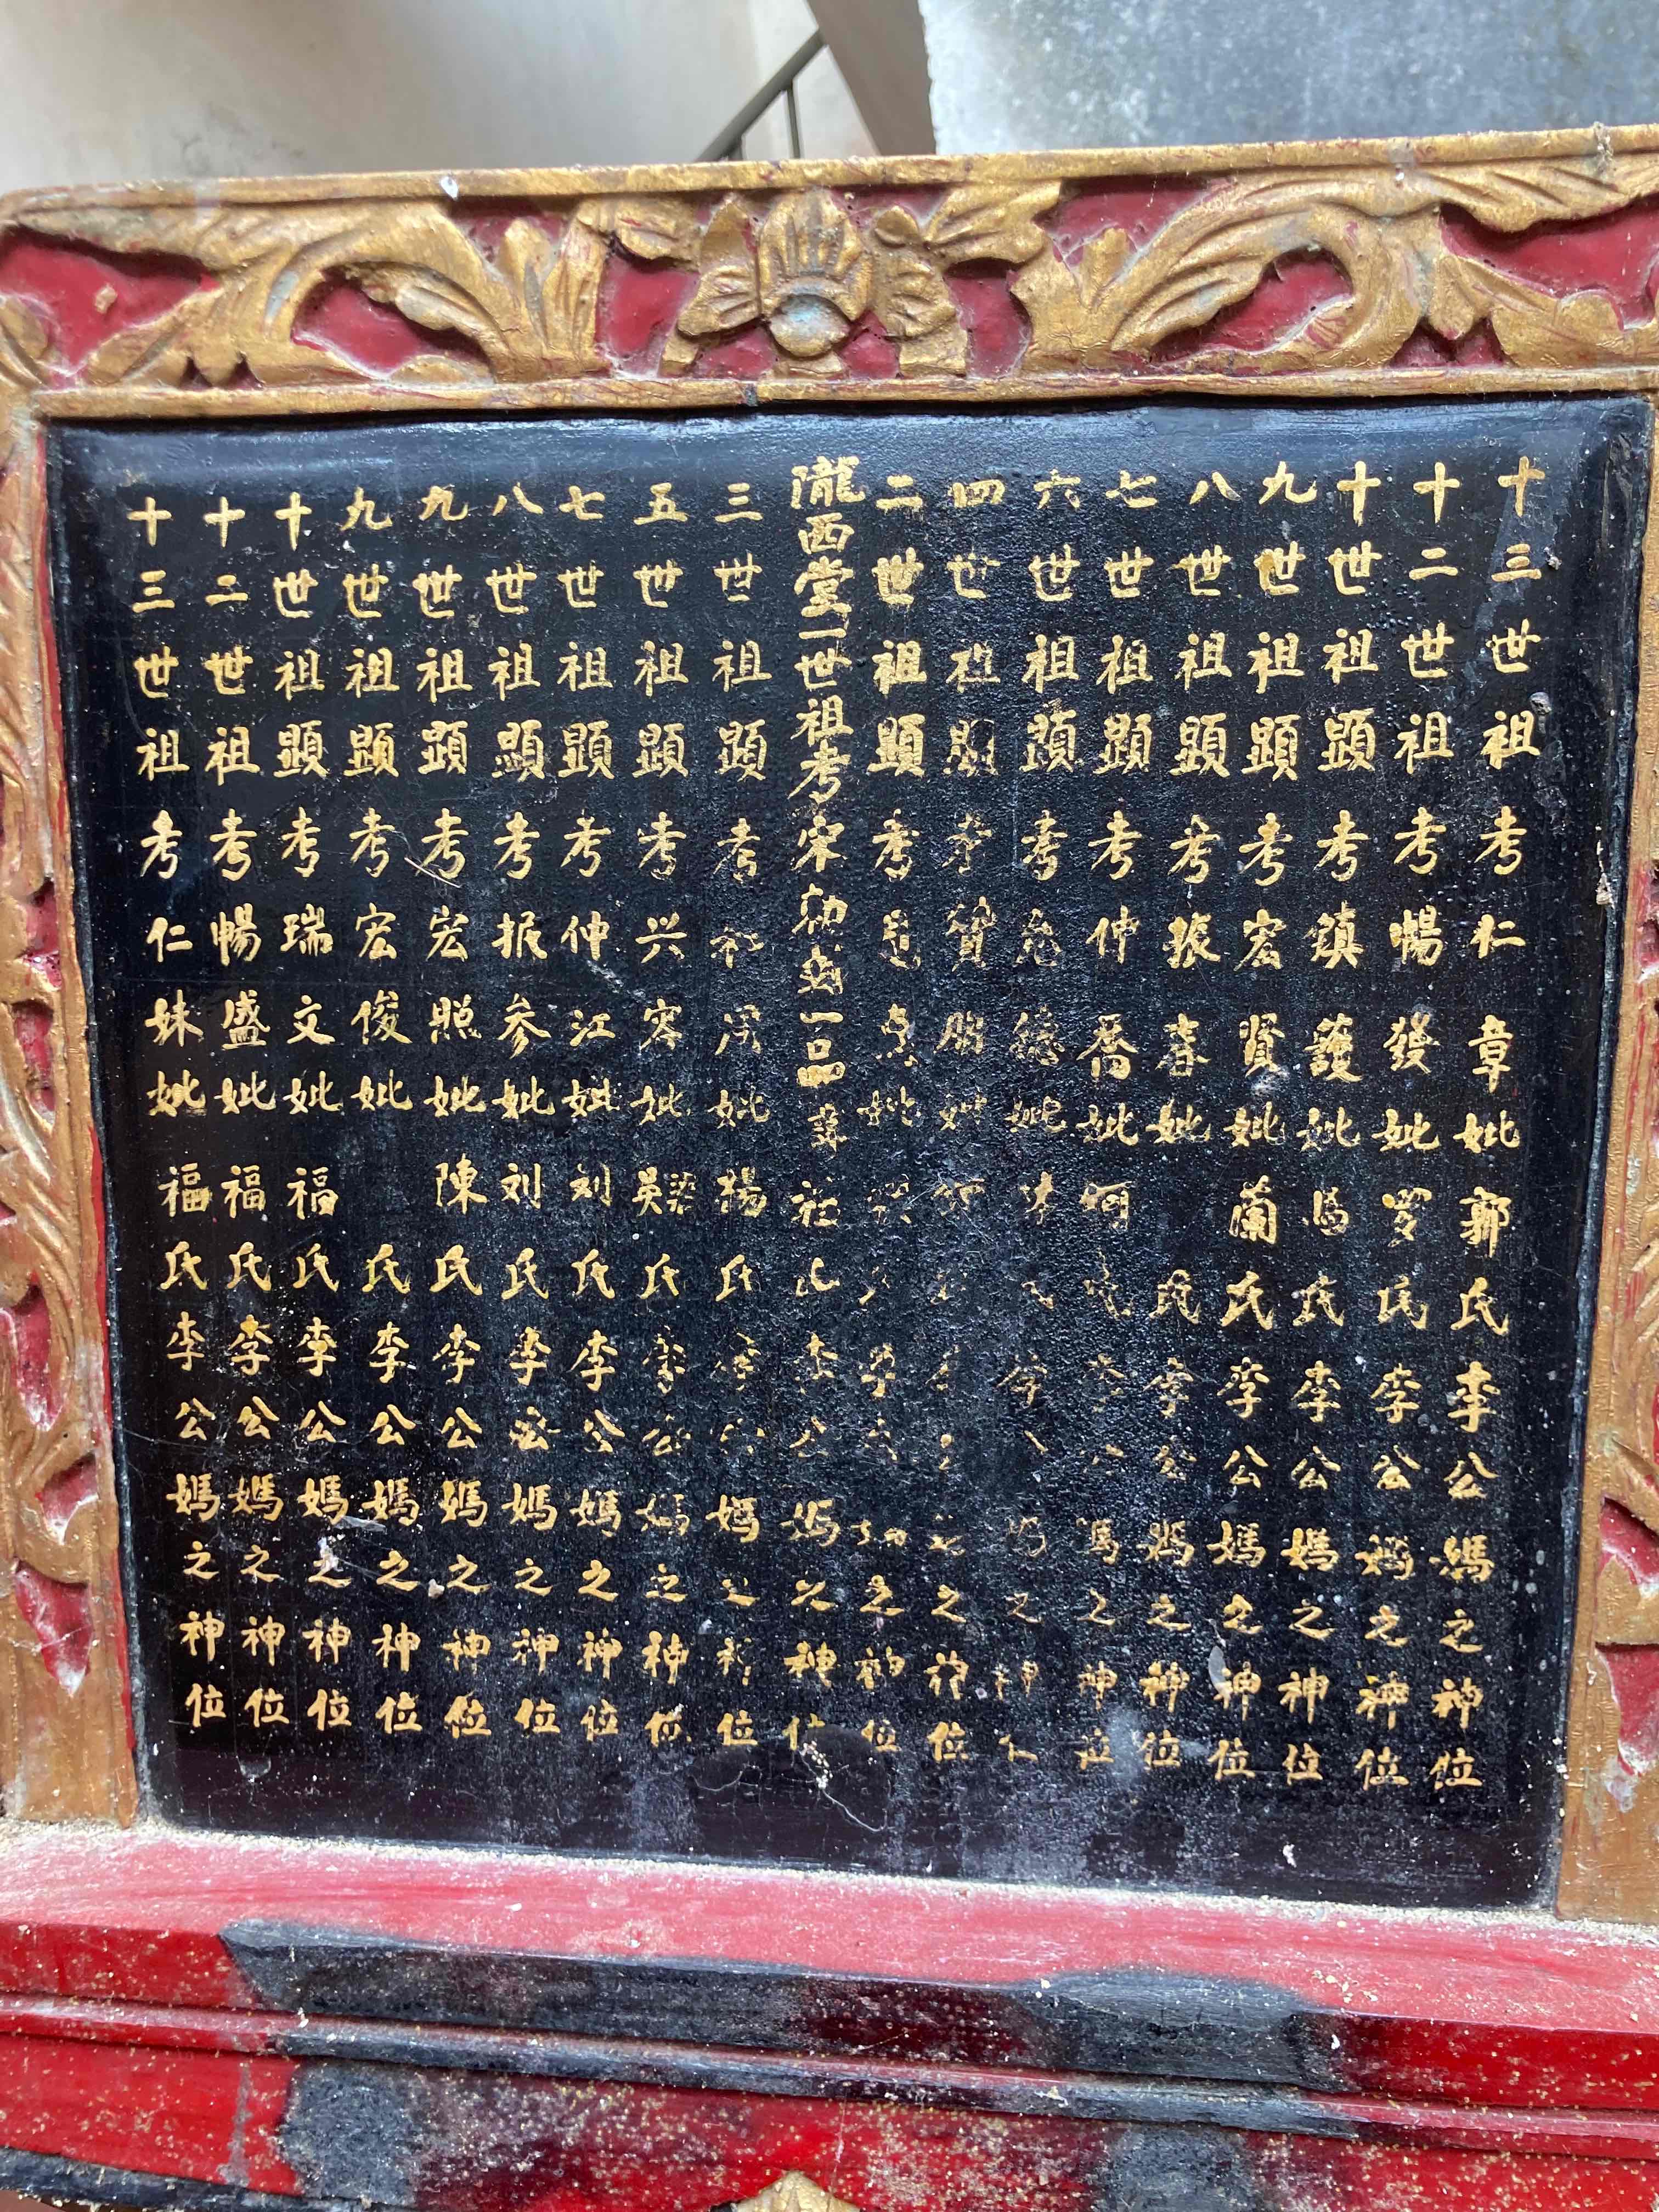 十三世祖考仁章妣郭氏李公媽之神位
十二世祖考暢發妣羅氏李公媽之神位
十世祖顕考鎮護妣馮氏李公媽之神位
九世祖顕考宏賢妣蘭氏李公媽之神位
八世祖顕考振春妣氏李公媽之神位
七世祖顕考仲喬妣何氏李公媽之神位
六世祖顕考德妣李媽之神位
四世祖顕考妣之神位
二世祖顕考妣李之神位
隴西堂一世祖考宋一品李公媽之神位
三世祖顕考妣楊氏李公媽之神位
五世祖顕考兴妣吳氏李公媽之神位
七世祖顕考仲江妣刘氏李公媽之神位
八世祖顕考振参妣刘氏李公媽之神位
九世祖顕考宏照妣陳氏李公媽之神位
九世祖顕考宏俊妣氏李公媽之神位
十世祖顕考瑞文妣福氏李公媽之神位
十二世祖考暢盛妣福氏李公媽之神位
十三世祖考仁妹妣福氏李公媽之神位